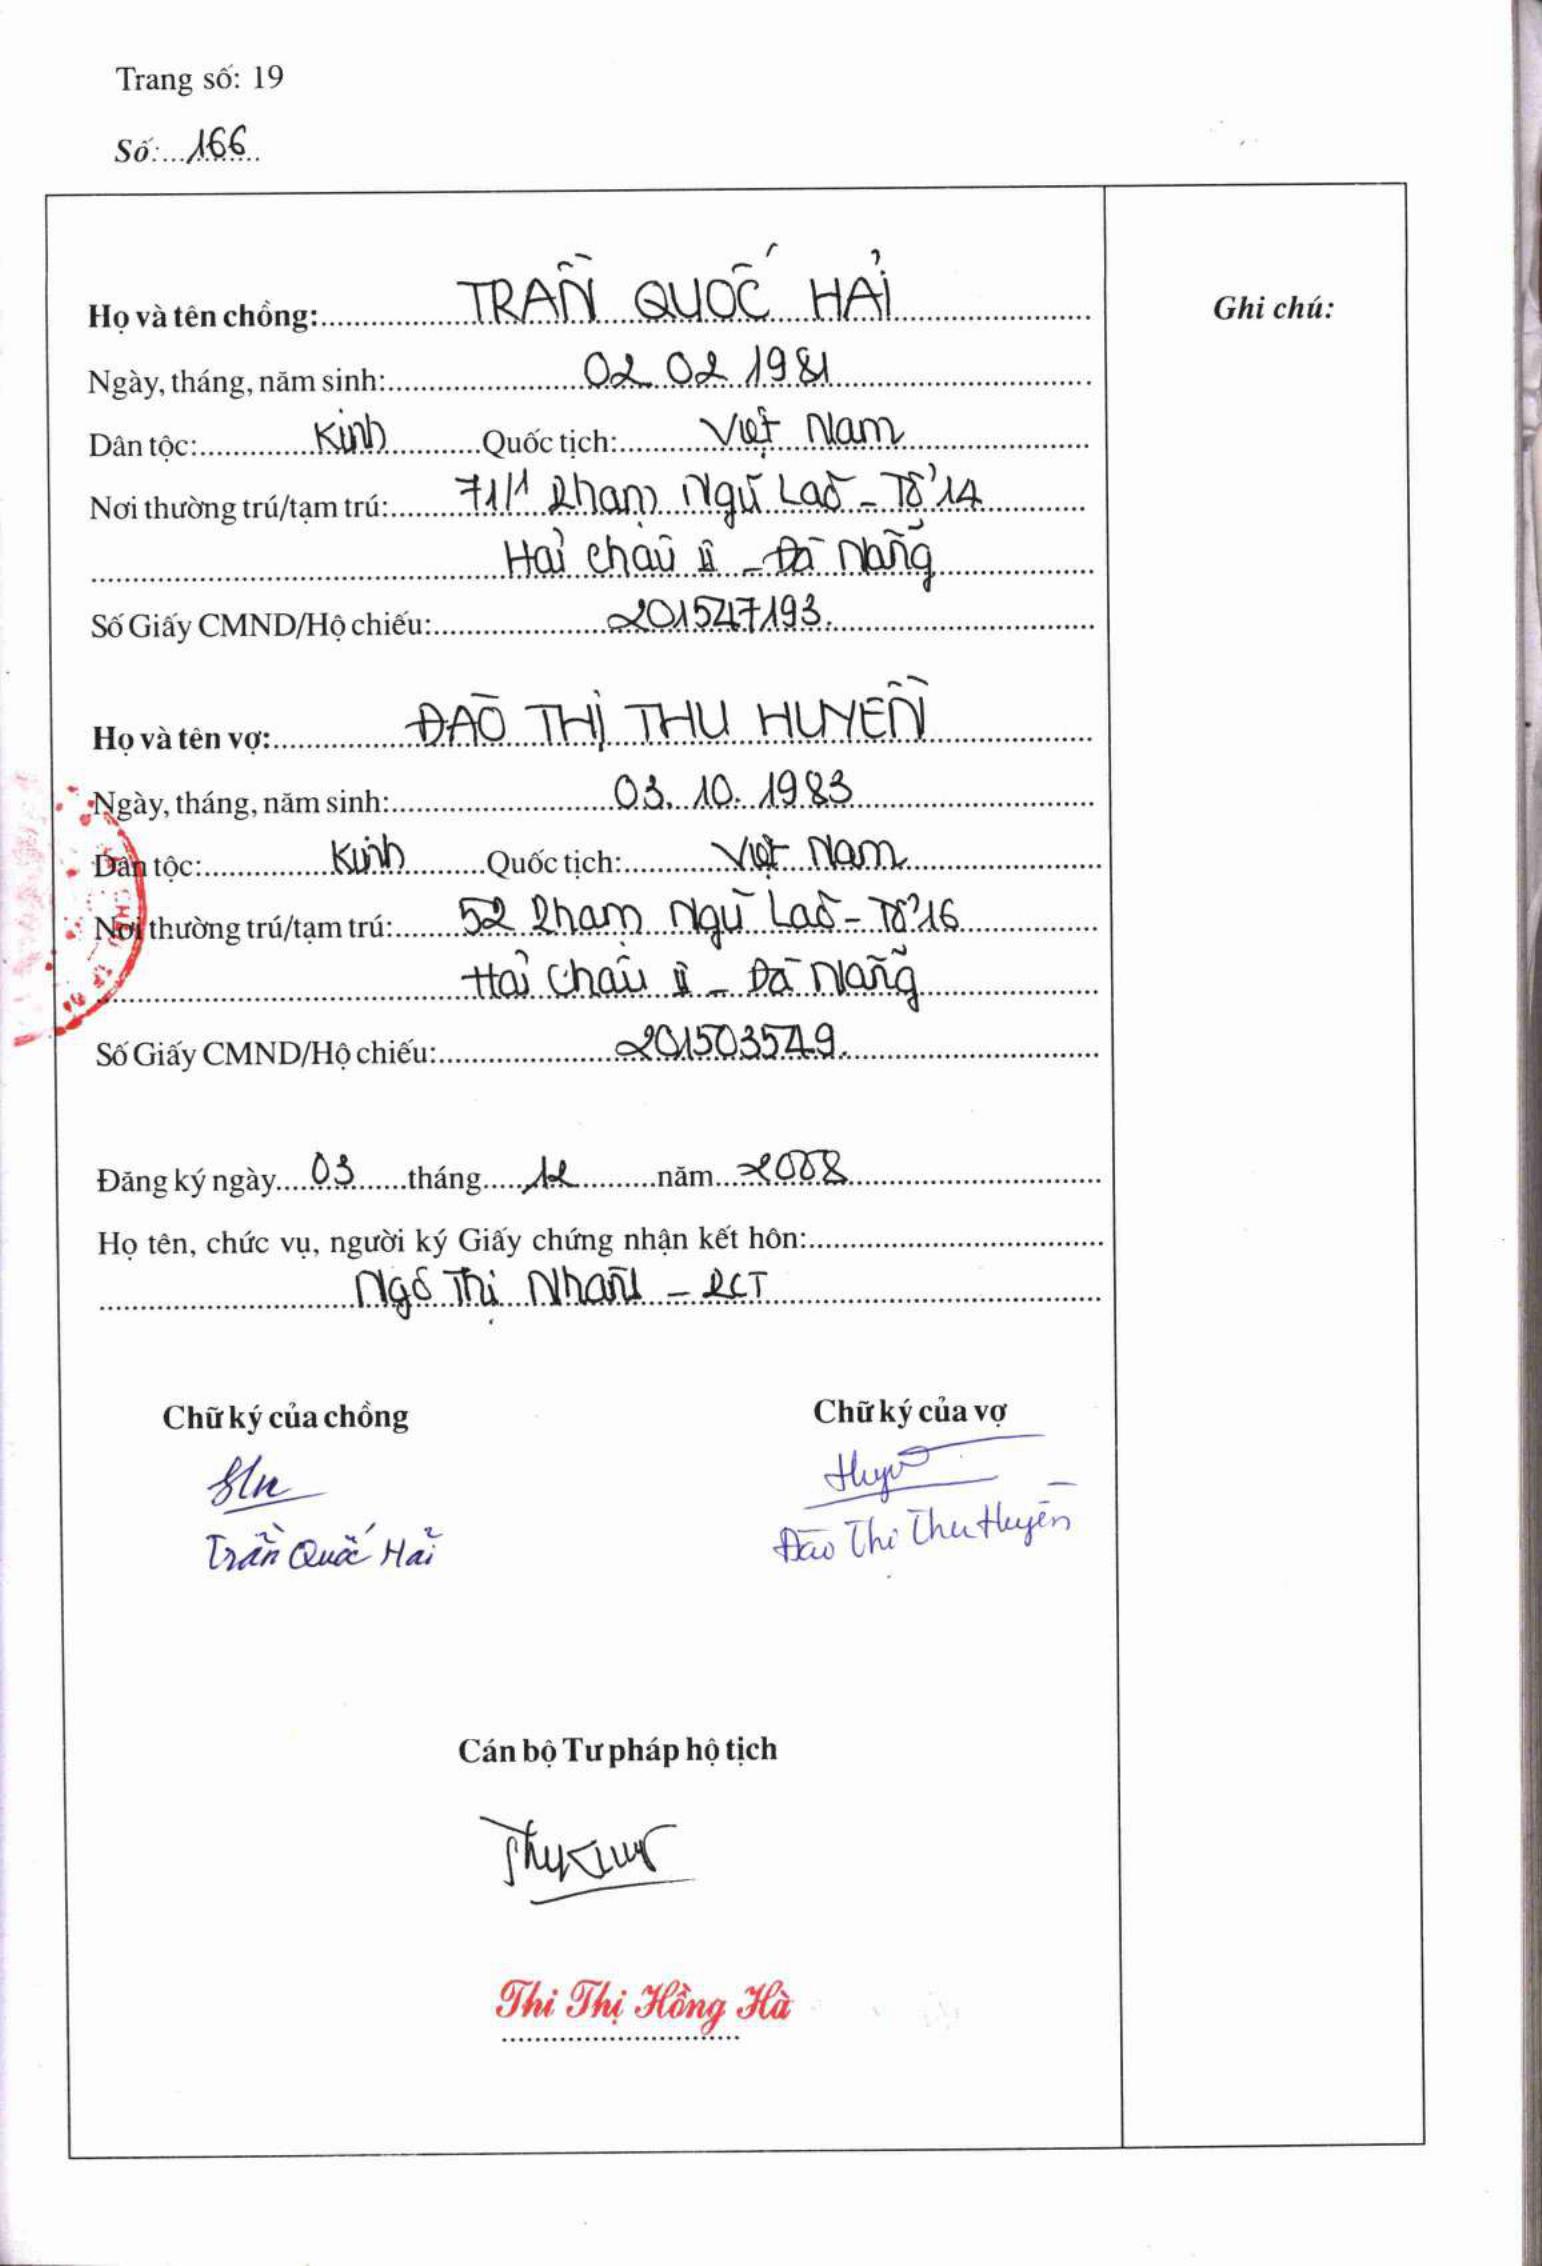 Trang số: 19
Số: 166
Họ và tên chồng: TRẦN QUỐC HẢI
Ghi chú:
Ngày, tháng, năm sinh: 02 02 1981
Dân tộc: Kinh Quốc tịch: Việt Nam
Nơi thường trú/tạm trú: 71/1 Phạm Ngũ Lão - Tổ 14
Hải Châu II - Đà Nẵng
Số Giấy CMND/Hộ chiếu: 201547193.
Họ và tên vợ: ĐÀO THỊ THU HUYỀN
Ngày, tháng, năm sinh: 03. 10. 1983
Dân tộc: Kinh Quốc tịch: Việt Nam
Nơi thường trú/tạm trú: 52 Phạm Ngũ Lão - Tổ 16
Hải Châu II - Đà Nẵng
Số Giấy CMND/Hộ chiếu: 201503549.
Đăng ký ngày 03 tháng 12 năm 2008
Họ tên, chức vụ, người ký Giấy chứng nhận kết hôn:
Ngô Thị Nhạn - PCT
Chữ ký của chồng Chữ ký của vợ
Trần Quốc Hải Đào Thị Thu Huyền
Cán bộ Tư pháp hộ tịch
Thi Thị Hồng Hà